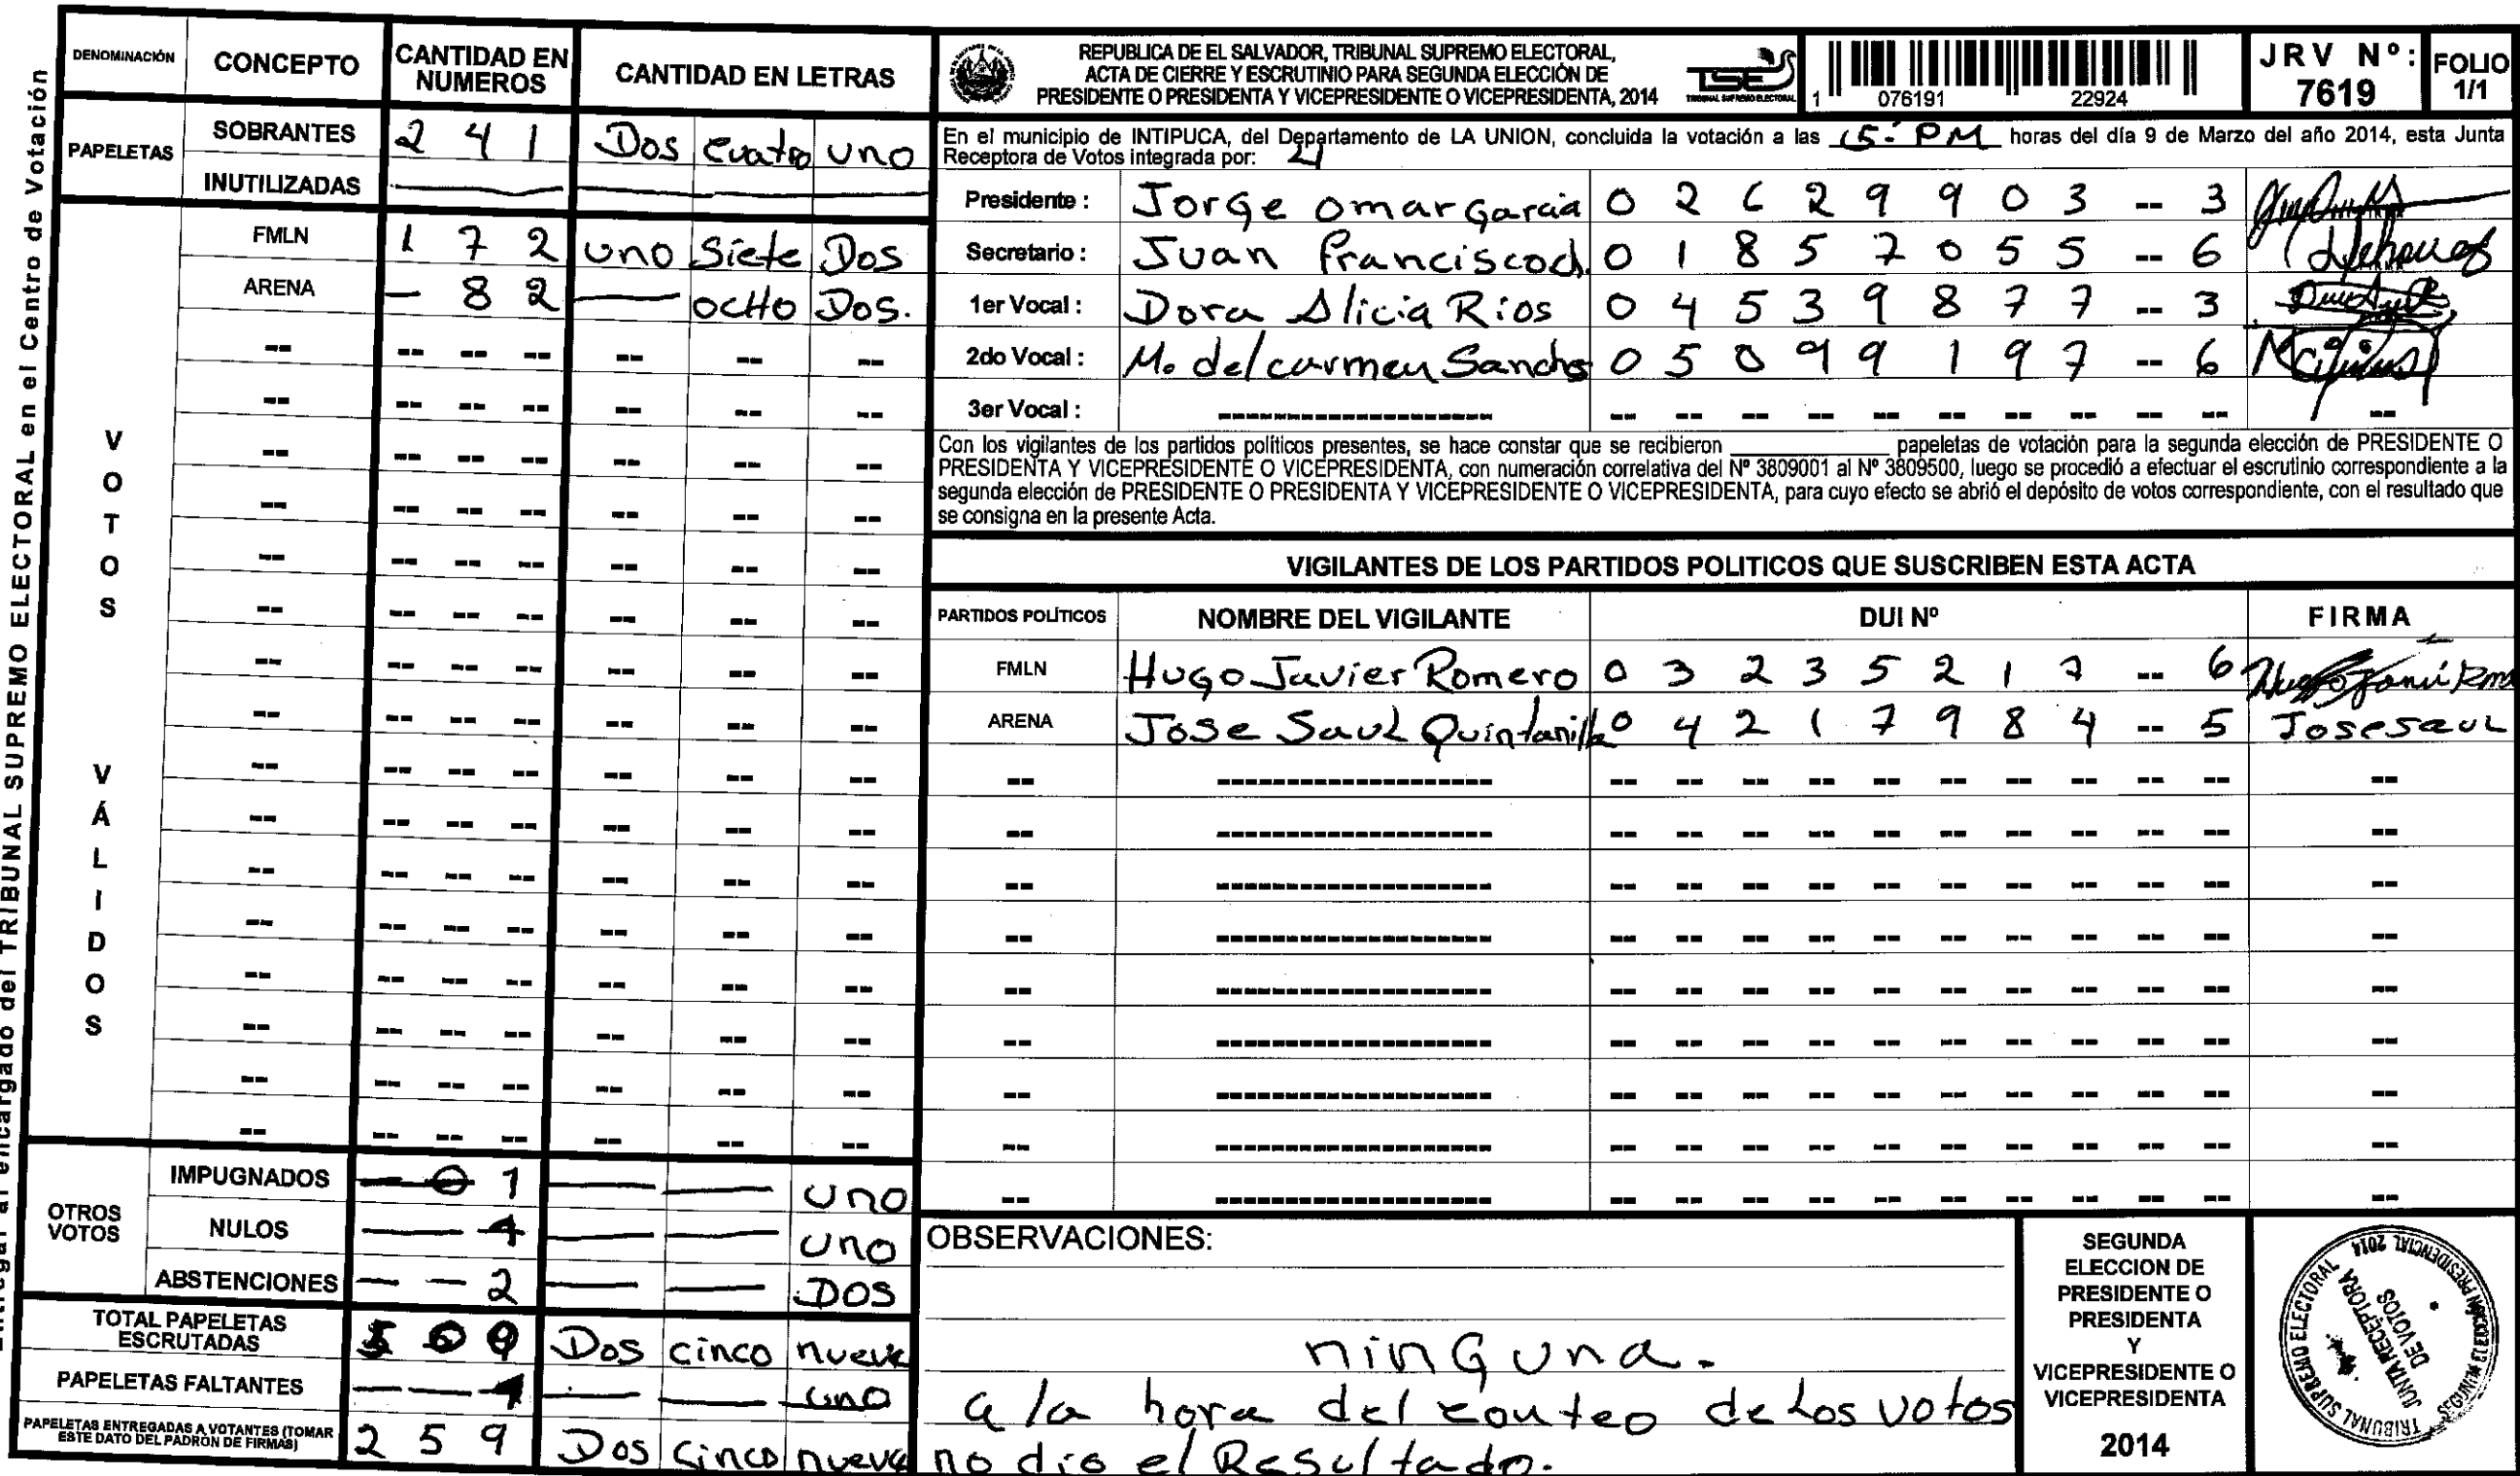 Entregar al encargado del TRIBUNAL SUPREMO ELECTORAL en el Centro de Votación
DENOMINACIÓN CONCEPTO CANTIDAD EN NUMEROS CANTIDAD EN LETRAS
PAPELETAS
SOBRANTES 2 4 1 Dos cuatro uno
INUTILIZADAS
VOTOS VÁLIDOS
FMLN 1 7 2 uno Siete Dos
ARENA - 8 2 — OCHO DOS.
OTROS VOTOS
IMPUGNADOS 1 uno
NULOS 1 uno
ABSTENCIONES — — 2 — — DOS
TOTAL PAPELETAS ESCRUTADAS Dos cinco nueve
PAPELETAS FALTANTES 1 uno
PAPELETAS ENTREGADAS A VOTANTES (TOMAR ESTE DATO DEL PADRON DE FIRMAS) 2 5 9 Dos Cinco nueve
REPUBLICA DE EL SALVADOR, TRIBUNAL SUPREMO ELECTORAL,
ACTA DE CIERRE Y ESCRUTINIO PARA SEGUNDA ELECCIÓN DE
PRESIDENTE O PRESIDENTA Y VICEPRESIDENTE O VICEPRESIDENTA, 2014
TSE
TRIBUNAL SUPREMO ELECTORAL
1 076191 22924
JRV Nº: 7619
FOLIO 1/1
En el municipio de INTIPUCA, del Departamento de LA UNION, concluida la votación a las 5:- PM horas del día 9 de Marzo del año 2014, esta Junta
Receptora de Votos integrada por: 4
Presidente : Jorge omar Garcia 0 2 6 2 9 9 0 3 -- 3
Secretario : Juan francisco d. 0 1 8 5 7 0 5 5 -- 6
1er Vocal : Dora Alicia Rios 0 4 5 3 9 8 7 7 -- 3
2do Vocal : M. del carmen Sanchs 0 5 0 9 9 1 9 7 -- 6
3er Vocal :
Con los vigilantes de los partidos políticos presentes, se hace constar que se recibieron ________ papeletas de votación para la segunda elección de PRESIDENTE O
PRESIDENTA Y VICEPRESIDENTE O VICEPRESIDENTA, con numeración correlativa del Nº 3809001 al Nº 3809500, luego se procedió a efectuar el escrutinio correspondiente a la
segunda elección de PRESIDENTE O PRESIDENTA Y VICEPRESIDENTE O VICEPRESIDENTA, para cuyo efecto se abrió el depósito de votos correspondiente, con el resultado que
se consigna en la presente Acta.
VIGILANTES DE LOS PARTIDOS POLITICOS QUE SUSCRIBEN ESTA ACTA
PARTIDOS POLÍTICOS NOMBRE DEL VIGILANTE DUI Nº FIRMA
FMLN Hugo Javier Romero 0 3 2 3 5 2 1 7 -- 6
ARENA Jose Saul Quintanilla 0 4 2 1 7 9 8 4 -- 5 Jose saul
OBSERVACIONES:
ninguna.
a la hora del conteo de Los votos
no dio el Resultado.
SEGUNDA
ELECCION DE
PRESIDENTE O
PRESIDENTA
Y
VICEPRESIDENTE O
VICEPRESIDENTA
2014
TRIBUNAL SUPREMO ELECTORAL
SEGUNDA ELECCIÓN PRESIDENCIAL 2014
JUNTA RECEPTORA
DE VOTOS